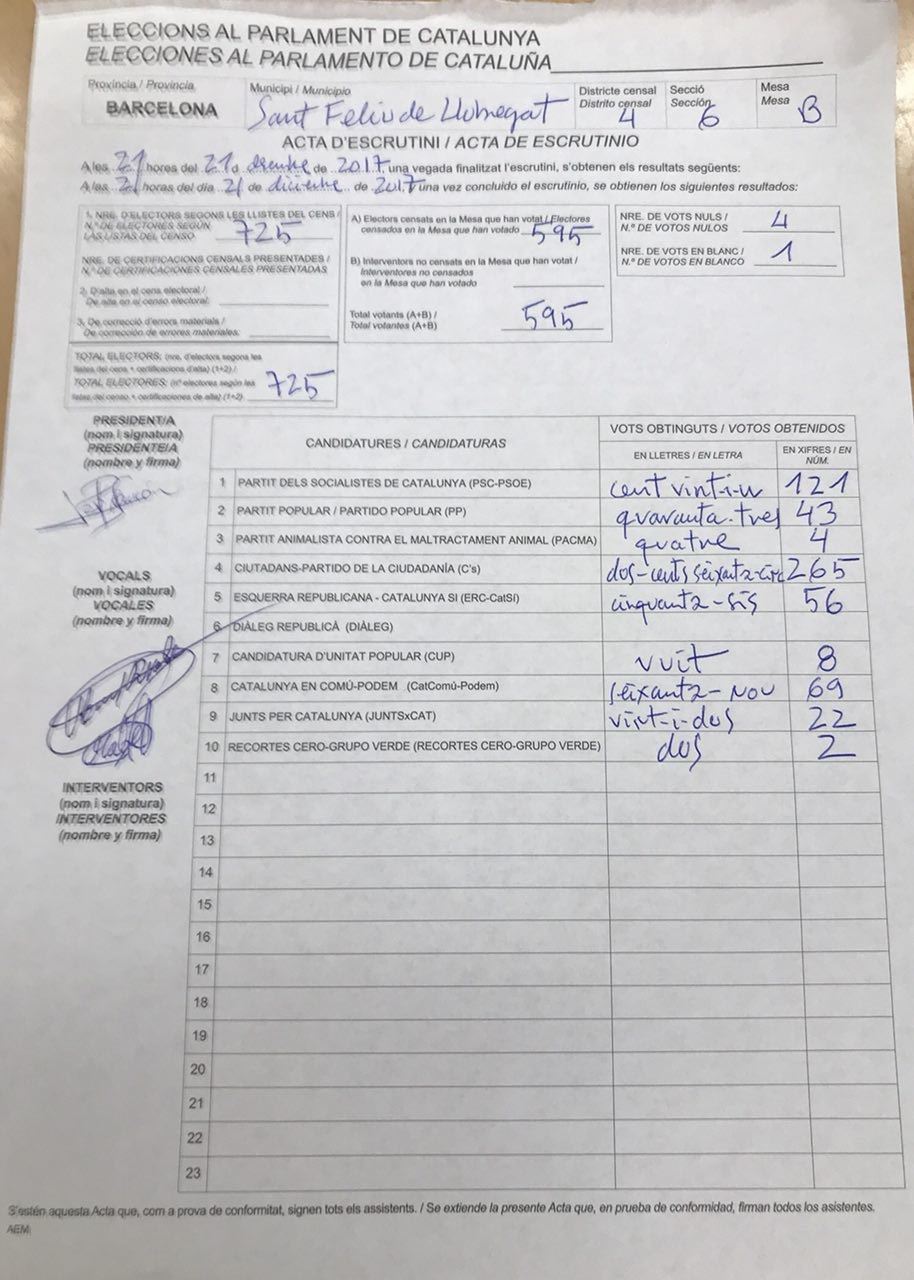 ELECCIONS AL PARLAMENT DE CATALUNYA
ELECCIONES AL PARLAMENTO DE CATALUÑA
Província / Provincia
BARCELONA
Municipi / Municipio
Sant Feliu de Llobregat
Districte censal
Distrito censal
4
Secció
Sección
6
Mesa
Mesa
B
ACTA D'ESCRUTINI / ACTA DE ESCRUTINIO
A les 21 hores del 21 d desembre de 2017, una vegada finalitzat l'escrutini, s'obtenen els resultats següents:
A las 21 horas del día 21 de diciembre de 2017 una vez concluido el escrutinio, se obtienen los siguientes resultados:
1. NRE. D'ELECTORS SEGONS LES LLISTES DEL CENS /
N.º DE ELECTORES SEGÚN
LAS LISTAS DEL CENSO
725
NRE. DE CERTIFICACIONS CENSALS PRESENTADES /
N.º DE CERTIFICACIONES CENSALES PRESENTADAS
2. D'alta en el cens electoral /
De alta en el censo electoral:
3. De correcció d'errors materials /
De corrección de errores materiales:
TOTAL ELECTORS: (nre. d'electors segons les
llistes del cens + certificacions d'alta) (1+2) /
TOTAL ELECTORES: (nº electores según las
listas del censo + certificaciones de alta) (1+2)
725
A) Electors censats en la Mesa que han votat / Electores
censados en la Mesa que han votado
595
B) Interventors no censats en la Mesa que han votat /
Interventores no censados
en la Mesa que han votado
Total votants (A+B) /
Total votantes (A+B)
595
NRE. DE VOTS NULS /
N.º DE VOTOS NULOS
4
NRE. DE VOTS EN BLANC /
N.º DE VOTOS EN BLANCO
1
PRESIDENT/A
(nom i signatura)
PRESIDENTE/A
(nombre y firma)
VOCALS
(nom i signatura)
VOCALES
(nombre y firma)
INTERVENTORS
(nom i signatura)
INTERVENTORES
(nombre y firma)
CANDIDATURES / CANDIDATURAS
VOTS OBTINGUTS / VOTOS OBTENIDOS
EN LLETRES / EN LETRA
EN XIFRES / EN NÚM.
1 PARTIT DELS SOCIALISTES DE CATALUNYA (PSC-PSOE) cent vint-i-u 121
2 PARTIT POPULAR / PARTIDO POPULAR (PP) quaranta-tres 43
3 PARTIT ANIMALISTA CONTRA EL MALTRACTAMENT ANIMAL (PACMA) quatre 4
4 CIUTADANS-PARTIDO DE LA CIUDADANÍA (C's) dos-cents seixanta-cinc 265
5 ESQUERRA REPUBLICANA - CATALUNYA SI (ERC-CatSí) cinquanta-sis 56
6 DIÀLEG REPUBLICÀ (DIÀLEG)
7 CANDIDATURA D'UNITAT POPULAR (CUP) vuit 8
8 CATALUNYA EN COMÚ-PODEM (CatComú-Podem) seixanta-nou 69
9 JUNTS PER CATALUNYA (JUNTSxCAT) vint-i-dos 22
10 RECORTES CERO-GRUPO VERDE (RECORTES CERO-GRUPO VERDE) dos 2
11
12
13
14
15
16
17
18
19
20
21
22
23
S'estén aquesta Acta que, com a prova de conformitat, signen tots els assistents. / Se extiende la presente Acta que, en prueba de conformidad, firman todos los asistentes.
AEM